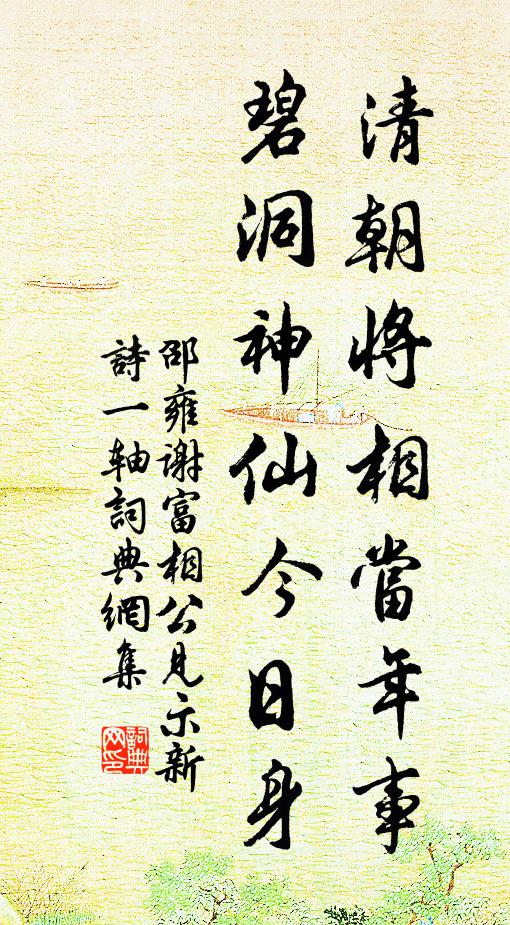 清朝將相當年事
碧洞神仙今日身
邵雍謝富相公見示新
詩一轴詞典網集
詞典网印